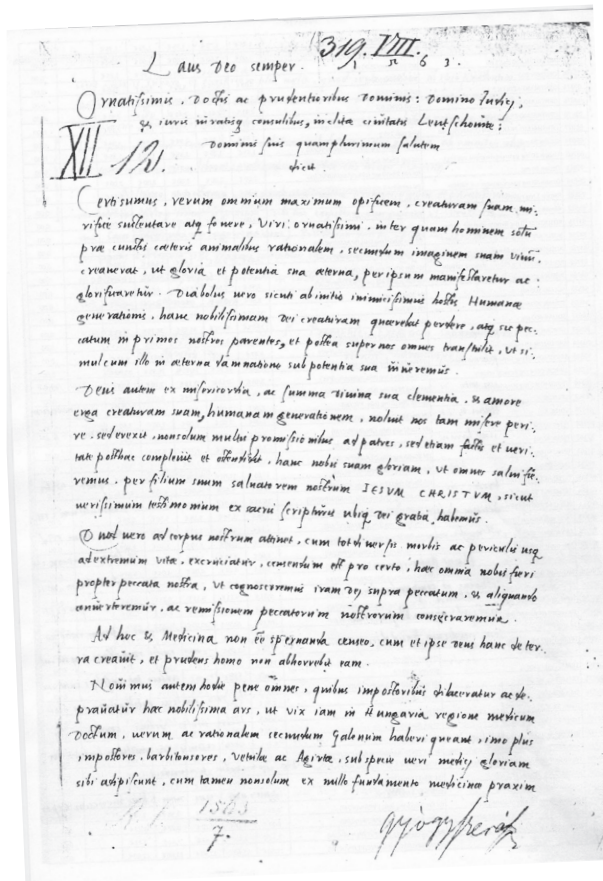 319. VIII.
Laus Deo semper. 1563.
Ornatissimis, Doctis ac prudentioribus Dominis: Domino Iudici,
& iuris iuratisq consulibus, inclitæ ciuitatis Leutschouiæ:
Dominis suis quamplurimum salutem
dicit.
XII 12.
Certissimus, verum omnium maximum opificem, creaturam suam mi-
rifice sustentare atq fouere, Viri ornatissimi, inter quam hominem solū
præ cunctis cæteris animalibus rationalem, secundum imaginem suam vivā
creauerat, ut gloria et potentia sua æterna, per ipsum manifestaretur ac
glorificaretur. Diabolus uero sicuti ab initio inimicissimus hostis Humanæ
generationis, hanc nobilissimam Dei creaturam quærebat perdere, atq sic pec-
catum in primos nostros parentes, et postea super nos omnes transtulit, ut si-
mul cum illo in æterna damnatione sub potentia sua
Deus autem ex misericordia, ac summa diuina sua clementia, & amore
erga creaturam suam, humanam generationem, noluit nos tam misere peri-
re. sed erexit, non solum multis promissionibus ad patres, sed etiam factis et ueri-
tate posthac compleuit et ostendit, hanc nobis suam gloriam, ut omnes salui fie-
remus. per filium suum saluatorem nostrum IESUM CHRISTVM, sicut
uerissimum testimonium ex sacris scripturis ubiq Dei gratia habemus.
Quod uero ad corpus nostrum attinet, cum tot diuersis morbis ac periculis usq
ad extremum vitæ, excruciatur, censendum est pro certo, hæc omnia nobis fieri
propter peccata nostra, ut cognosceremus iram Dei supra peccatum, & aliquando
conuerteremur, ac remissionem peccatorum nostrorum consequaremur.
Ad hoc & Medicina non ēē spernanda censeo, cum et ipse Deus hanc de ter-
ra creauit, et prudens homo non abhorrebit eam.
Nouimus autem hodie pene omnes, quibus impostoribus dilaceratur ac de-
prauatur hæc nobilissima ars, ut vix iam in Hungaria regione medicum
Doctum, uerum ac rationalem secundum Galenum haberi queant, imo plus
impostores, barbitonsores, vetulæ ac Agirtæ, sub specie ueri medici gloriam
sibi adipiscunt, cum tamen non solum ex nullo fundamento medicinæ praxim
1563
7.